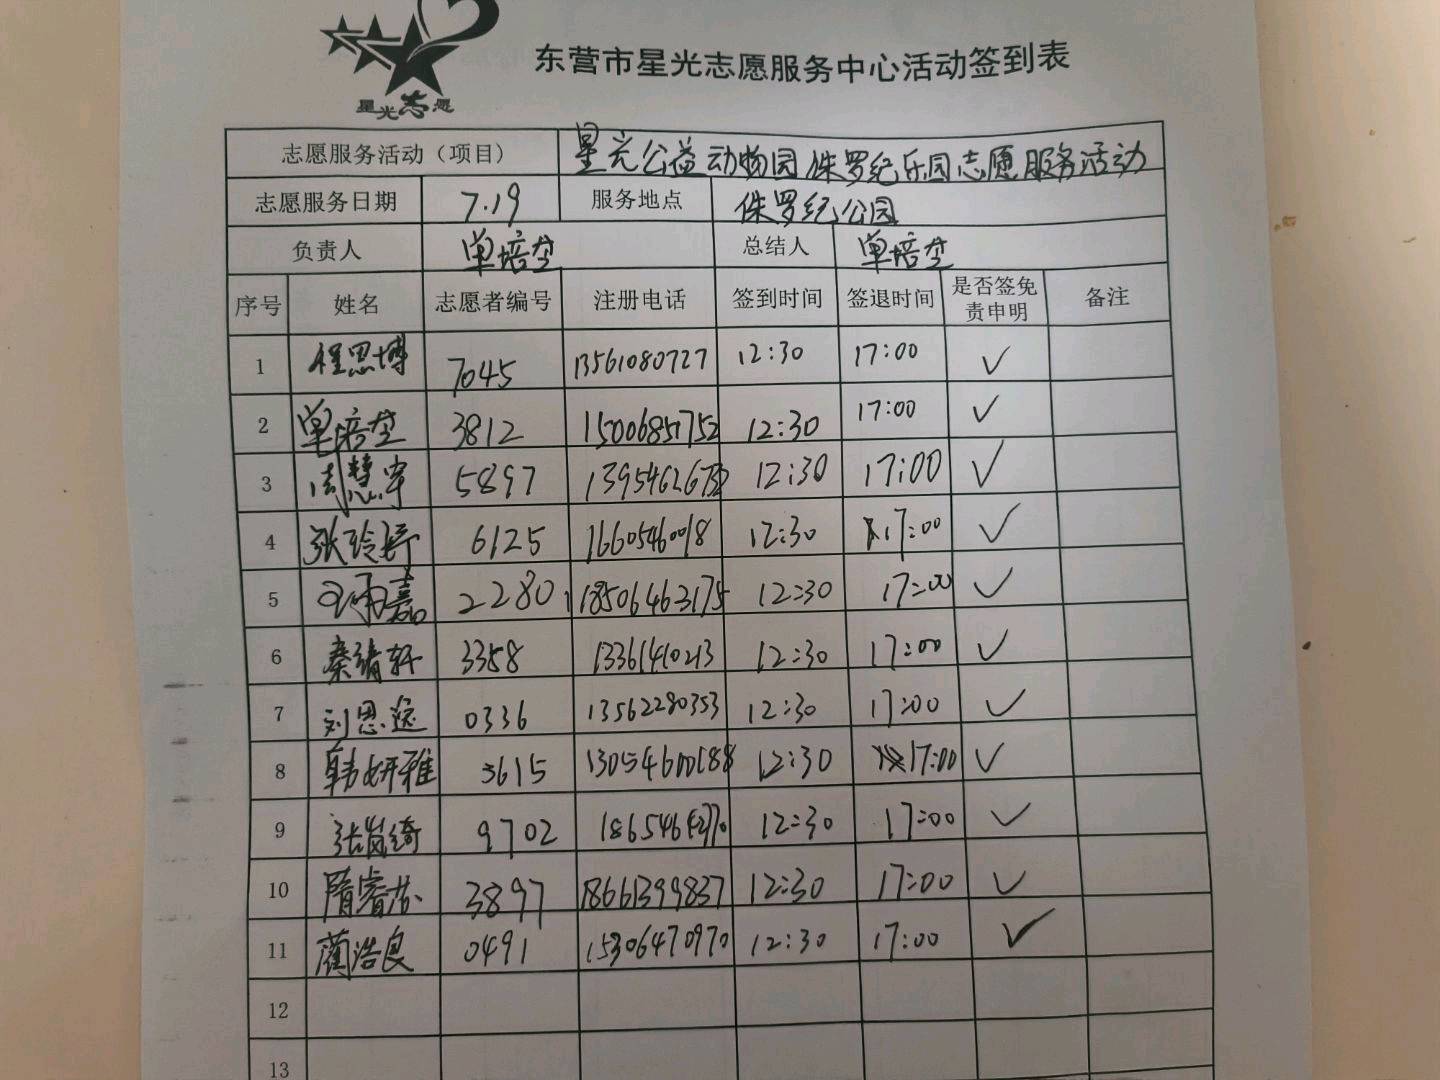 星光志愿
东营市星光志愿服务中心活动签到表
志愿服务活动（项目） 星光公益动物园侏罗纪乐园志愿服务活动
志愿服务日期 7.19 服务地点 侏罗纪公园
负责人 单培垄 总结人 单培垄
序号 姓名 志愿者编号 注册电话 签到时间 签退时间 是否签免责申明 备注
1 程思博 7045 13561080727 12:30 17:00 ✓
2 单培垄 3812 15006851752 12:30 17:00 ✓
3 周慧宇 5897 12:30 17:00 ✓
4 张玲 6125 16605460018 12:30 17:00 ✓
5 2280 18506463175 12:30 17:00 ✓
6 秦靖轩 3358 13361410213 12:30 17:00 ✓
7 刘恩 0336 13562280353 12:30 17:00 ✓
8 韩妍雅 3615 13054600188 12:30 17:00 ✓
9 张岚绮 9702 12:30 17:00 ✓
10 隋睿 3897 18661399837 12:30 17:00 ✓
11 蔺浩良 0491 15306470970 12:30 17:00 ✓
12
13